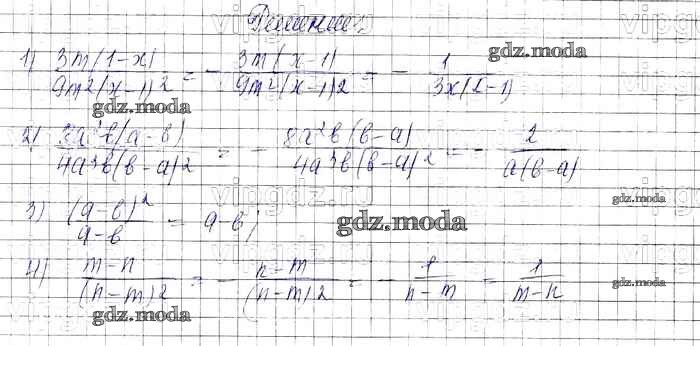 Решение
1) 3m(1-x) / 9m²(x-1)2 = - 3m(x-1) / 9m²(x-1)2 = - 1 / 3x(x-1) gdz.moda
gdz.moda
2) 8a²b(a-b) / 4a³b(b-a)2 = - 8a²b(b-a) / 4a³b(b-a)² = - 2 / a(b-a)
vipgdz.ru
gdz.moda
3) (a-b)² / a-b = a-b; gdz.moda
4) m-n / (n-m)2 = - n-m / (n-m)2 = - 1 / n-m = 1 / m-n gdz.moda
gdz.moda